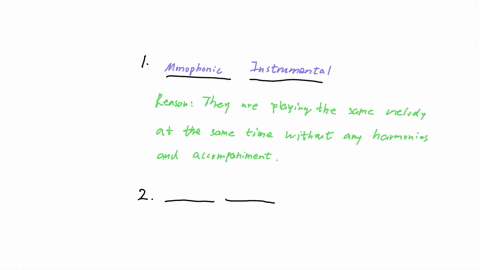 1. Monophonic Instrumental
Reason: They are playing the same melody
at the same time without any harmonies
and accompaniment.
2.